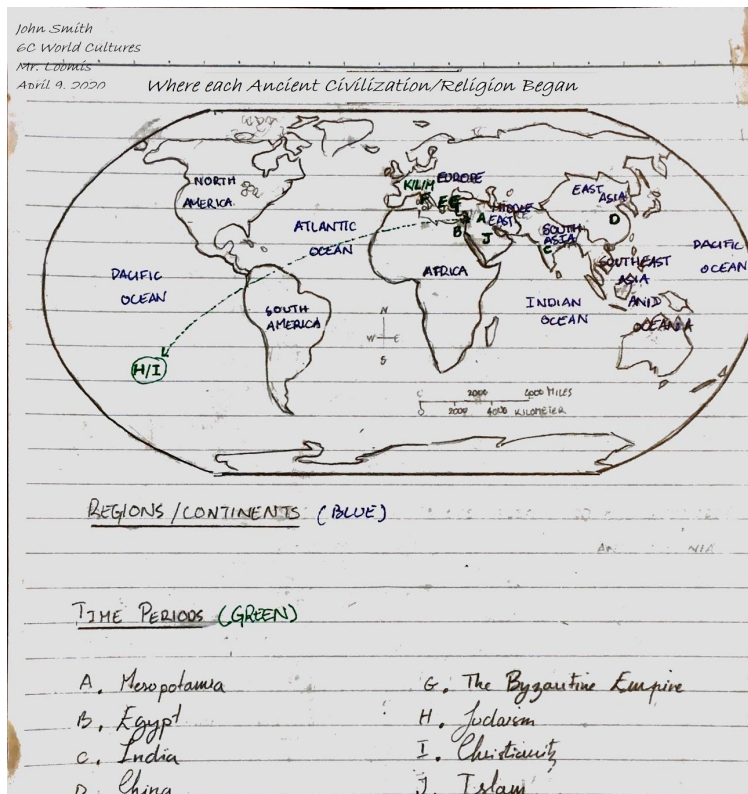 John Smith
6C World Cultures
Mr. Loomis
April 9, 2020
Where each Ancient Civilization/Religion Began
NORTH
AMERICA
ATLANTIC
OCEAN
PACIFIC
OCEAN
SOUTH
AMERICA
H/I
K/L/M
EUROPE
F
E
G
MIDDLE
EAST
A
B
J
AFRICA
EAST
ASIA
D
SOUTH
ASIA
C
SOUTHEAST
ASIA
AND
OCEANIA
INDIAN
OCEAN
PACIFIC
OCEAN
N
W E
S
2000 4000 MILES
0 2000 4000 KILOMETER
REGIONS/CONTINENTS (BLUE)
TIME PERIODS (GREEN)
A. Mesopotamia
B. Egypt
C. India
D. China
G. The Byzantine Empire
H. Judaism
I. Christianity
J. Islam